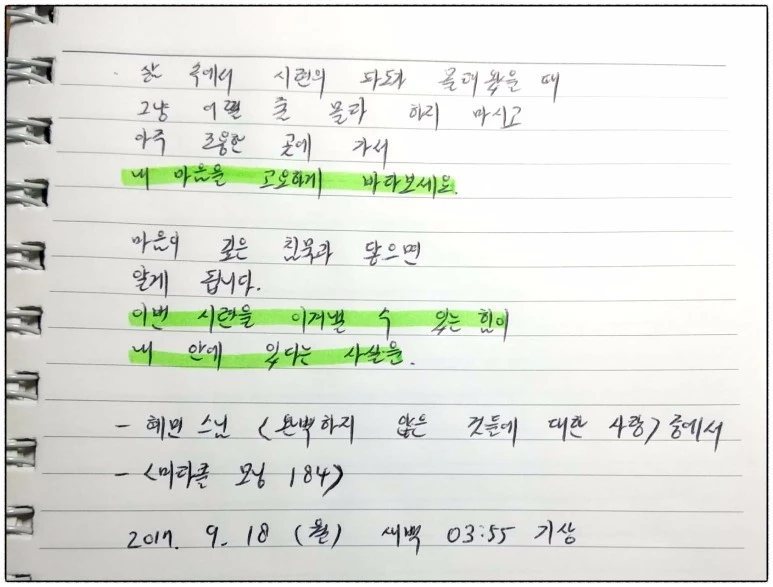 · 삶 속에서 시련의 파도가 몰려왔을 때
그냥 어쩔 줄 몰라 하지 마시고
아주 조용한 곳에 가서
내 마음을 고요하게 바라보세요.
마음이 깊은 침묵과 닿으면
알게 됩니다.
이번 시련을 이겨낼 수 있는 힘이
내 안에 있다는 사실을.
- 혜민 스님 <완벽하지 않은 것들에 대한 사랑> 중에서
- <미라클 모닝 184>
2017. 9. 18 (월) 새벽 03:55 기상